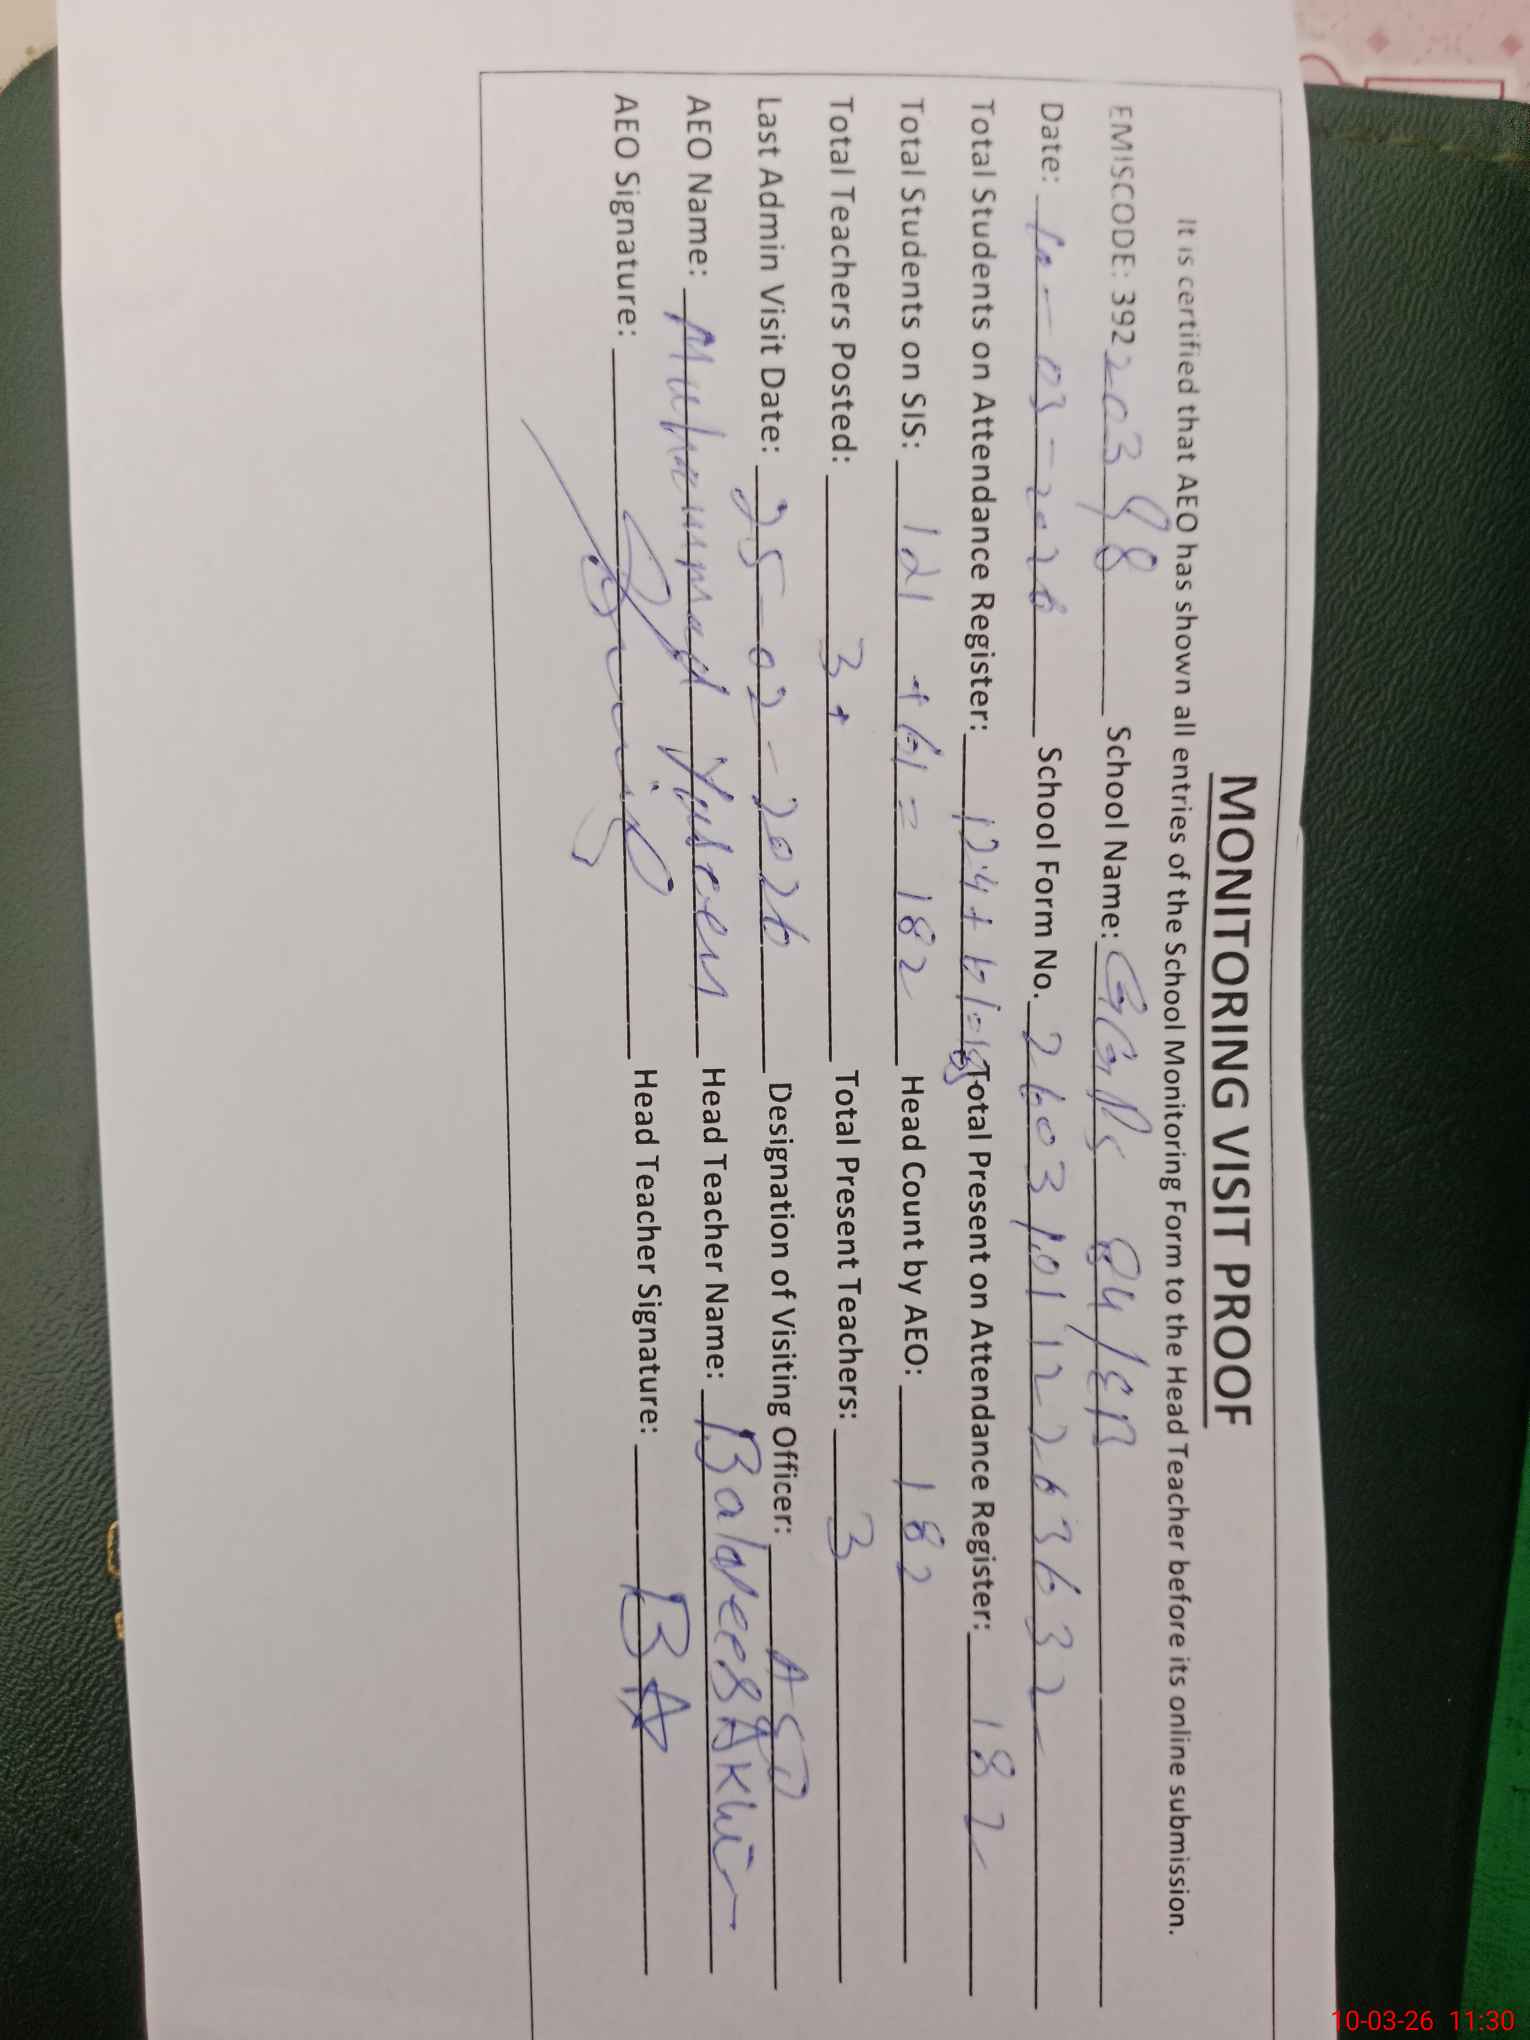 MONITORING VISIT PROOF
It is certified that AEO has shown all entries of the School Monitoring Form to the Head Teacher before its online submission.
EMISCODE: 39220398 School Name: GGPS 84/EB
Date: 10-03-2026 School Form No. 260310112263632
Total Students on Attendance Register: 124+61=185 Total Present on Attendance Register: 182
Total Students on SIS: 121 +61 = 182 Head Count by AEO: 182
Total Teachers Posted: 3 + Total Present Teachers: 3
Last Admin Visit Date: 25-02-2026 Designation of Visiting Officer:
AEO Name: Muhammad Head Teacher Name: Balqees Akhtar
AEO Signature: Head Teacher Signature: BA
10-03-26 11:30